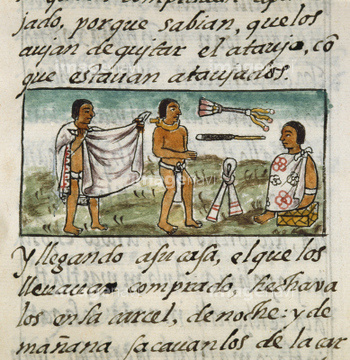 jado, porque sabian, que los
auian de quitar el atauio, cō
que estauan atauiados.
Y llegando a su casa, el que los
lleuaua comprado, hechava
los en la carcel, de noche: y de
mañana sacauan los de la car